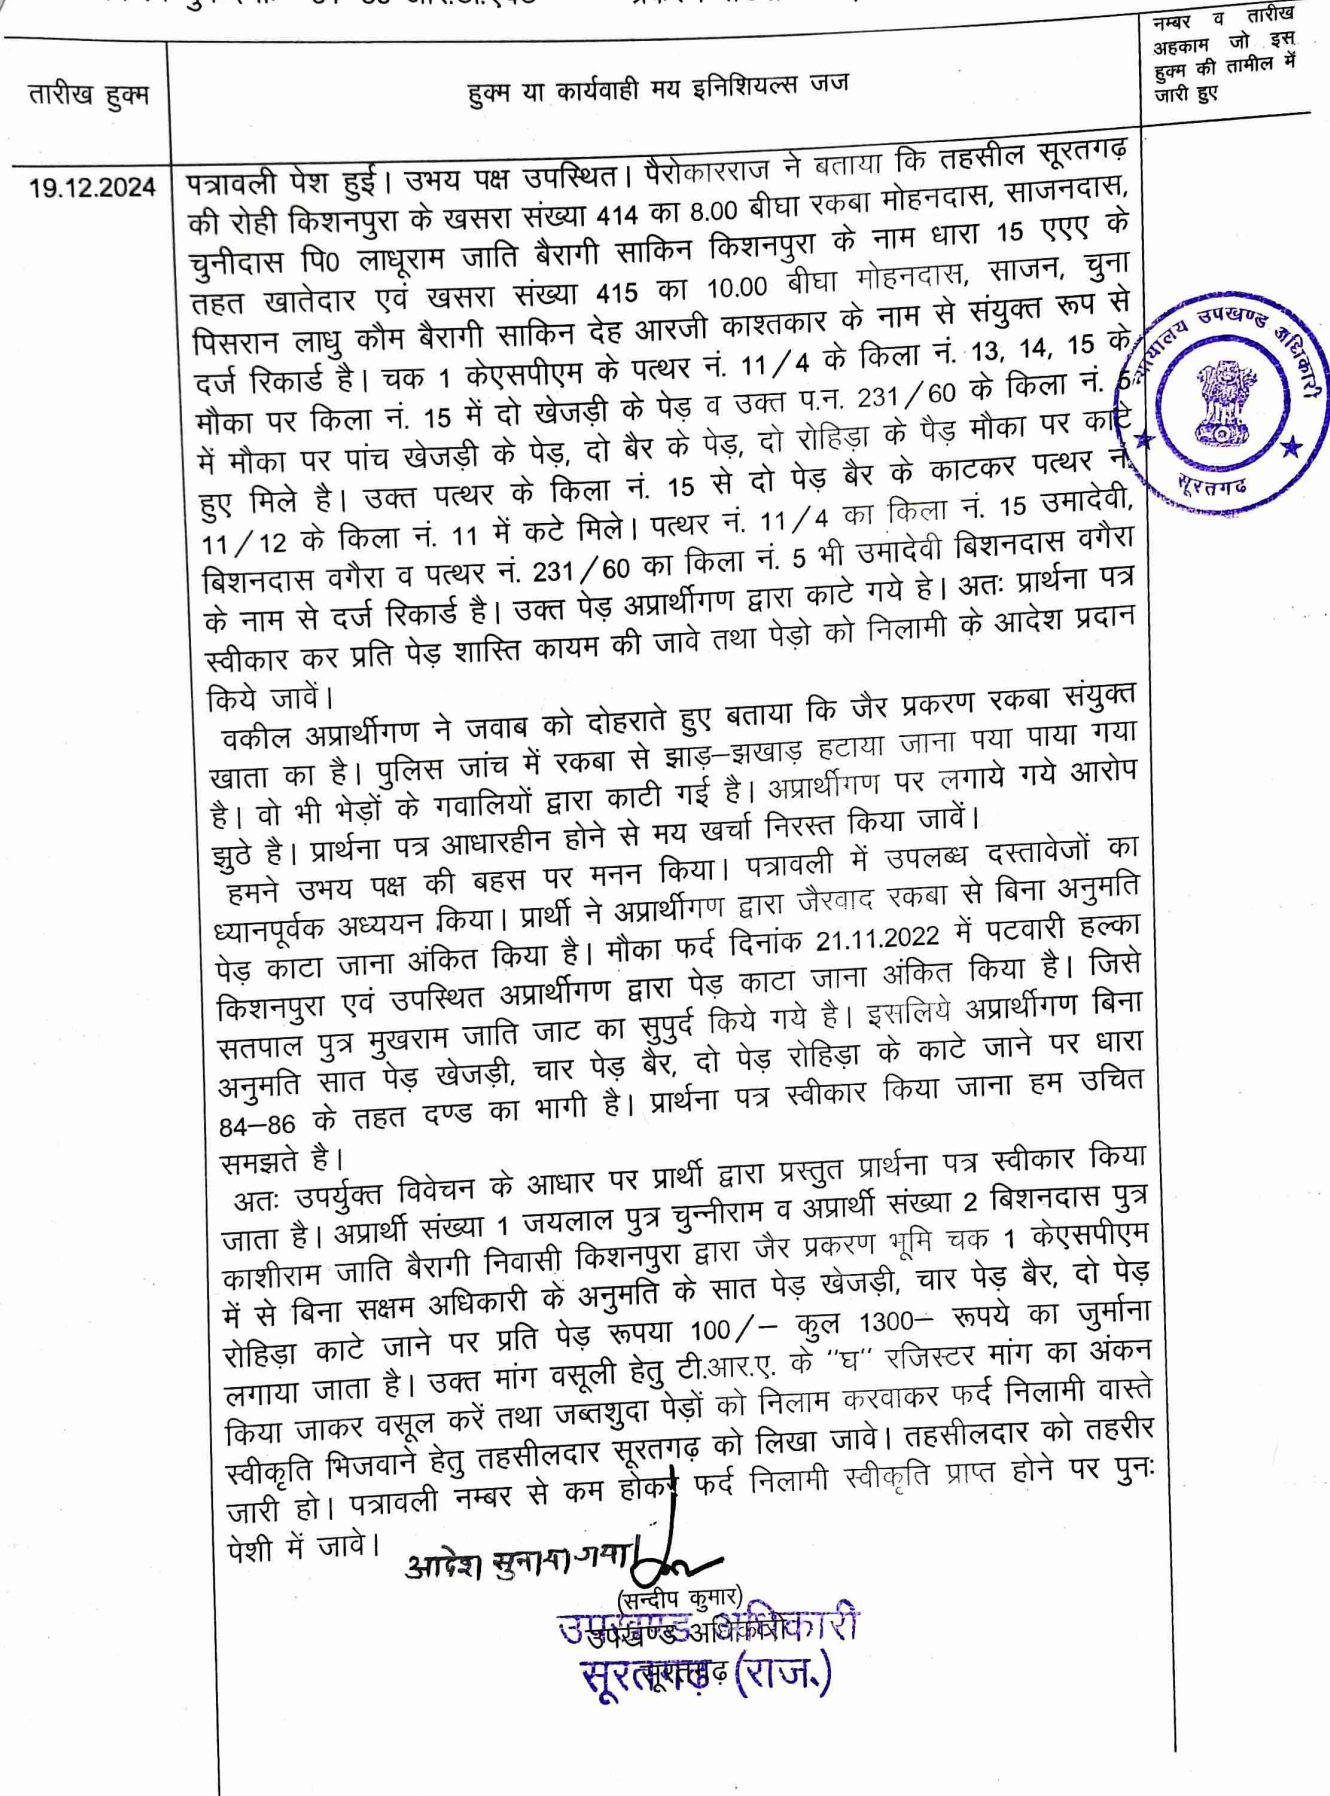 तारीख हुक्म
हुक्म या कार्यवाही मय इनिशियल्स जज
नम्बर व तारीख
अहकाम जो इस
हुक्म की तामील में
जारी हुए
19.12.2024
पत्रावली पेश हुई। उभय पक्ष उपस्थित। पैरोकारराज ने बताया कि तहसील सूरतगढ़
की रोही किशनपुरा के खसरा संख्या 414 का 8.00 बीघा रकबा मोहनदास, साजनदास,
चुनीदास पि0 लाधूराम जाति बैरागी साकिन किशनपुरा के नाम धारा 15 एएए के
तहत खातेदार एवं खसरा संख्या 415 का 10.00 बीघा मोहनदास, साजन, चुना
पिसरान लाधु कौम बैरागी साकिन देह आरजी काश्तकार के नाम से संयुक्त रूप से
दर्ज रिकार्ड है। चक 1 केएसपीएम के पत्थर नं. 11/4 के किला नं. 13, 14, 15 के
मौका पर किला नं. 15 में दो खेजड़ी के पेड़ व उक्त प.न. 231/60 के किला नं. 5
में मौका पर पांच खेजड़ी के पेड़, दो बैर के पेड़, दो रोहिड़ा के पैड़ मौका पर काटे
हुए मिले है। उक्त पत्थर के किला नं. 15 से दो पेड़ बैर के काटकर पत्थर नं.
11/12 के किला नं. 11 में कटे मिले। पत्थर नं. 11/4 का किला नं. 15 उमादेवी,
बिशनदास वगैरा व पत्थर नं. 231/60 का किला नं. 5 भी उमादेवी बिशनदास वगैरा
के नाम से दर्ज रिकार्ड है। उक्त पेड़ अप्रार्थीगण द्वारा काटे गये हे। अतः प्रार्थना पत्र
स्वीकार कर प्रति पेड़ शास्ति कायम की जावे तथा पेड़ो को निलामी के आदेश प्रदान
किये जावें।
वकील अप्रार्थीगण ने जवाब को दोहराते हुए बताया कि जैर प्रकरण रकबा संयुक्त
खाता का है। पुलिस जांच में रकबा से झाड़–झखाड़ हटाया जाना पया पाया गया
है। वो भी भेड़ों के गवालियों द्वारा काटी गई है। अप्रार्थीगण पर लगाये गये आरोप
झुठे है। प्रार्थना पत्र आधारहीन होने से मय खर्चा निरस्त किया जावें।
हमने उभय पक्ष की बहस पर मनन किया। पत्रावली में उपलब्ध दस्तावेजों का
ध्यानपूर्वक अध्ययन किया। प्रार्थी ने अप्रार्थीगण द्वारा जैरवाद रकबा से बिना अनुमति
पेड़ काटा जाना अंकित किया है। मौका फर्द दिनांक 21.11.2022 में पटवारी हल्का
किशनपुरा एवं उपस्थित अप्रार्थीगण द्वारा पेड़ काटा जाना अंकित किया है। जिसे
सतपाल पुत्र मुखराम जाति जाट का सुपुर्द किये गये है। इसलिये अप्रार्थीगण बिना
अनुमति सात पेड़ खेजड़ी, चार पेड़ बैर, दो पेड़ रोहिड़ा के काटे जाने पर धारा
84–86 के तहत दण्ड का भागी है। प्रार्थना पत्र स्वीकार किया जाना हम उचित
समझते है।
अतः उपर्युक्त विवेचन के आधार पर प्रार्थी द्वारा प्रस्तुत प्रार्थना पत्र स्वीकार किया
जाता है। अप्रार्थी संख्या 1 जयलाल पुत्र चुन्नीराम व अप्रार्थी संख्या 2 बिशनदास पुत्र
काशीराम जाति बैरागी निवासी किशनपुरा द्वारा जैर प्रकरण भूमि चक 1 केएसपीएम
में से बिना सक्षम अधिकारी के अनुमति के सात पेड़ खेजड़ी, चार पेड़ बैर, दो पेड़
रोहिड़ा काटे जाने पर प्रति पेड़ रूपया 100/– कुल 1300– रूपये का जुर्माना
लगाया जाता है। उक्त मांग वसूली हेतु टी.आर.ए. के "घ" रजिस्टर मांग का अंकन
किया जाकर वसूल करें तथा जब्तशुदा पेड़ों को निलाम करवाकर फर्द निलामी वास्ते
स्वीकृति भिजवाने हेतु तहसीलदार सूरतगढ़ को लिखा जावे। तहसीलदार को तहरीर
जारी हो। पत्रावली नम्बर से कम होकर फर्द निलामी स्वीकृति प्राप्त होने पर पुनः
पेशी में जावे।
आदेश सुनाया गया
(सन्दीप कुमार)
उपखण्ड अधिकारी
सूरतगढ़
उपखण्ड अधिकारी
सूरतगढ़ (राज.)
न्यायालय उपखण्ड अधिकारी
सूरतगढ